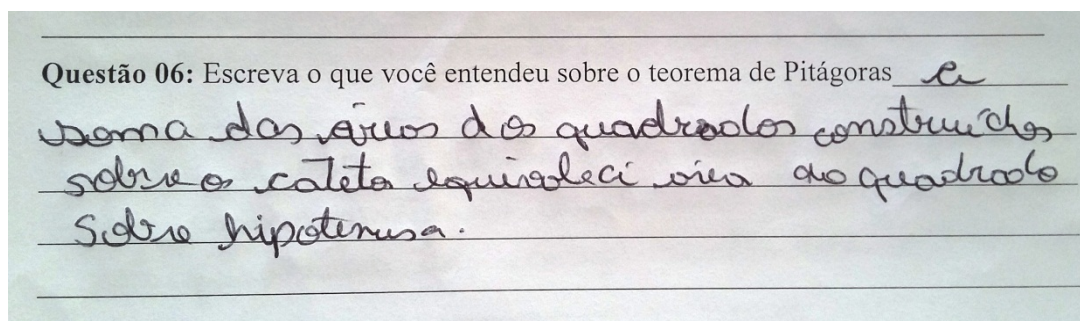 Questão 06: Escreva o que você entendeu sobre o teorema de Pitágoras a
soma das áreas dos quadrados construidos
sobre os cateto equivaleci área do quadrado
sobre hipotenusa.